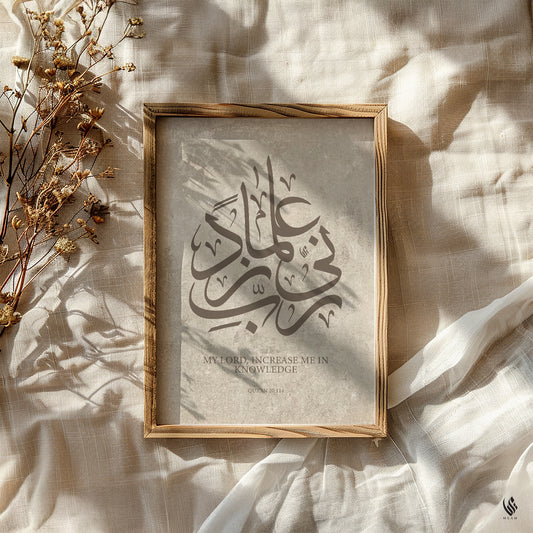 رب زدني علما
MY LORD, INCREASE ME IN
KNOWLEDGE
QURAN 20:114